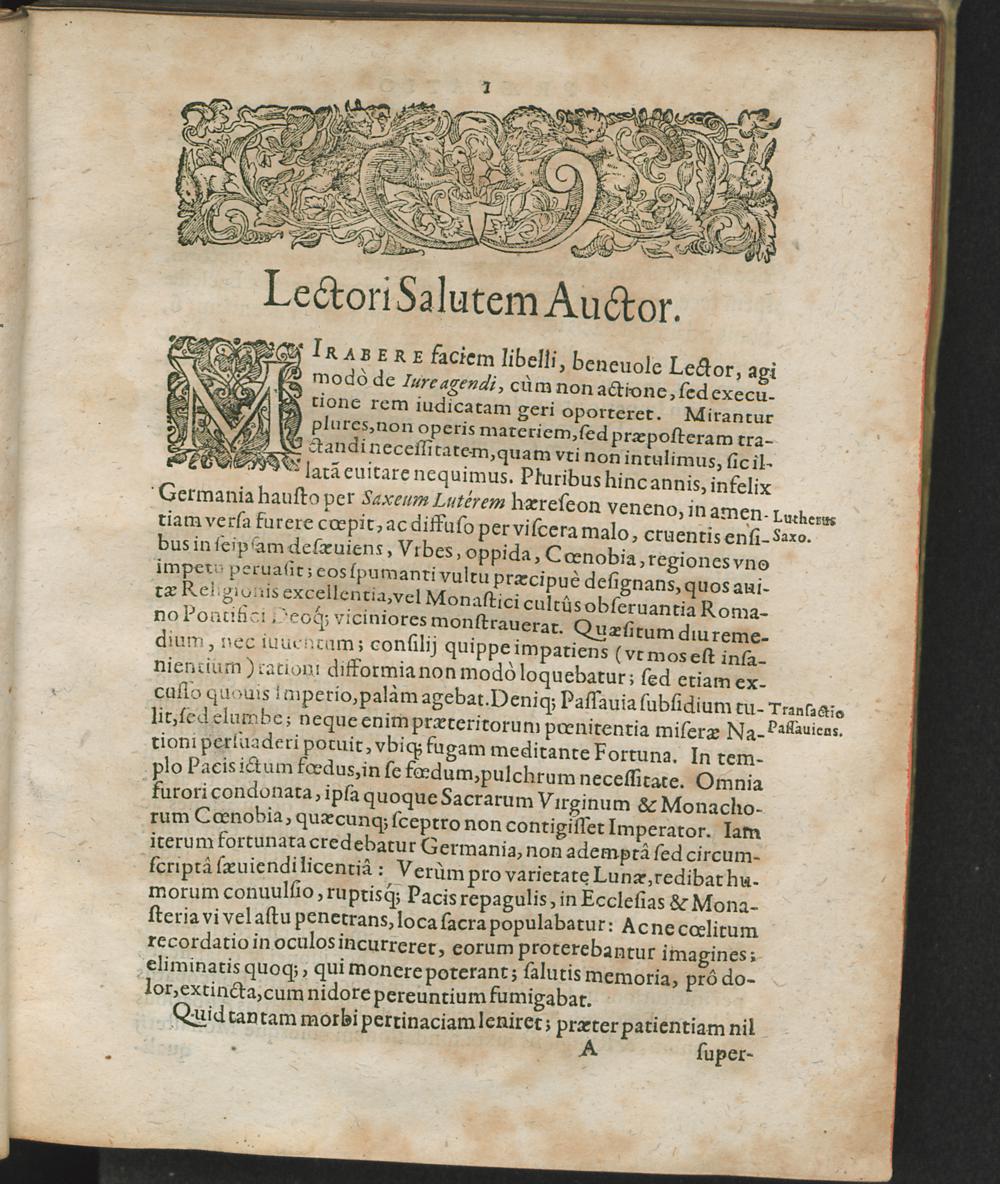 1
Lectori Salutem Auctor.
MIRABERE faciem libelli, beneuole Lector, agi
modò de Iure agendi, cùm non actione, ſed execu-
tione rem iudicatam geri oporteret. Mirantur
plures, non operis materiem, ſed præpoſteram tra-
ctandi neceſſitatem, quam vti non intulimus, ſic il-
latã euitare nequimus. Pluribus hinc annis, infelix
Germania hauſto per Saxeum Lutérem hæreſeon veneno, in amen-
Lutherus
tiam verſa furere cœpit, ac diffuſo per viſcera malo, cruentis enſi-
Saxo.
bus in ſeipſam deſæuiens, Vrbes, oppida, Cœnobia, regiones vno
impetu peruaſit; eos ſpumanti vultu præcipuè deſignans, quos aui-
tæ Religionis excellentia, vel Monaſtici cultûs obſeruantia Roma-
no Pontifici Deoq́; viciniores monſtrauerat. Quæſitum diu reme-
dium, nec inuentum; conſilij quippe impatiens (vt mos eſt inſa-
nientium) rationi difformia non modò loquebatur; ſed etiam ex-
cuſſo quouis Imperio, palàm agebat. Deniq; Paſſauia ſubſidium tu-
Tranſactio
lit, ſed elumbe; neque enim præteritorum pœnitentia miſeræ Na-
Paſſauiens.
tioni perſuaderi potuit, vbiq; fugam meditante Fortuna. In tem-
plo Pacis ictum fœdus, in ſe fœdum, pulchrum neceſſitate. Omnia
furori condonata, ipſa quoque Sacrarum Virginum & Monacho-
rum Cœnobia, quæcunq; ſceptro non contigiſſet Imperator. Iam
iterum fortunata credebatur Germania, non ademptâ ſed circum-
ſcriptâ ſæuiendi licentiâ: Verùm pro varietate Lunæ, redibat hu-
morum conuulſio, ruptisq́; Pacis repagulis, in Eccleſias & Mona-
ſteria vi vel aſtu penetrans, loca ſacra populabatur: Ac ne cœlitum
recordatio in oculos incurreret, eorum proterebantur imagines;
eliminatis quoq;, qui monere poterant; ſalutis memoria, prô do-
lor, extincta, cum nidore pereuntium fumigabat.
Quid tantam morbi pertinaciam leniret; præter patientiam nil
A ſuper-